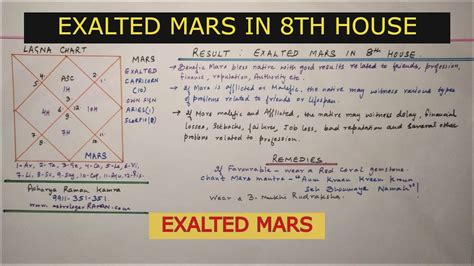 EXALTED MARS IN 8TH HOUSE
LAGNA CHART
MARS
EXALTED
CAPRICORN
(10)
OWN SIGN
ARIES(1)
SCORPIO(8)
ASC
1H
4H
10H
7H
MARS
1-Ar, 2-Ta, 3-Ge, 4-Ca, 5-Le, 6-Vi
7-Li, 8-Sc, 9-Sag, 10-Cap, 11-Aq, 12-Pis.
Acharya Raman Kamra
9911-351-351
www.astrologerRAMAN.com
RESULT : EXALTED MARS IN 8th HOUSE
→ Benefic Mars bless native with good results related to friends, profession,
finance, reputation, Authority etc.
→ If Mars is afflicted or Malefic, the native may witness various types
of problems related to friends or Lifespan.
→ If more malefic and afflicted, the native may witness delay, financial
losses, setbacks, failures, Job loss, bad reputation and several other
problems related to profession.
REMEDIES
If Favourable - wear a Red Coral gemstone.
chant Mars mantra - "Aum Kraan Kreen Kroun
Seh Bhaumaye Namah"
Wear a 3 Mukhi Rudraksha.
EXALTED MARS